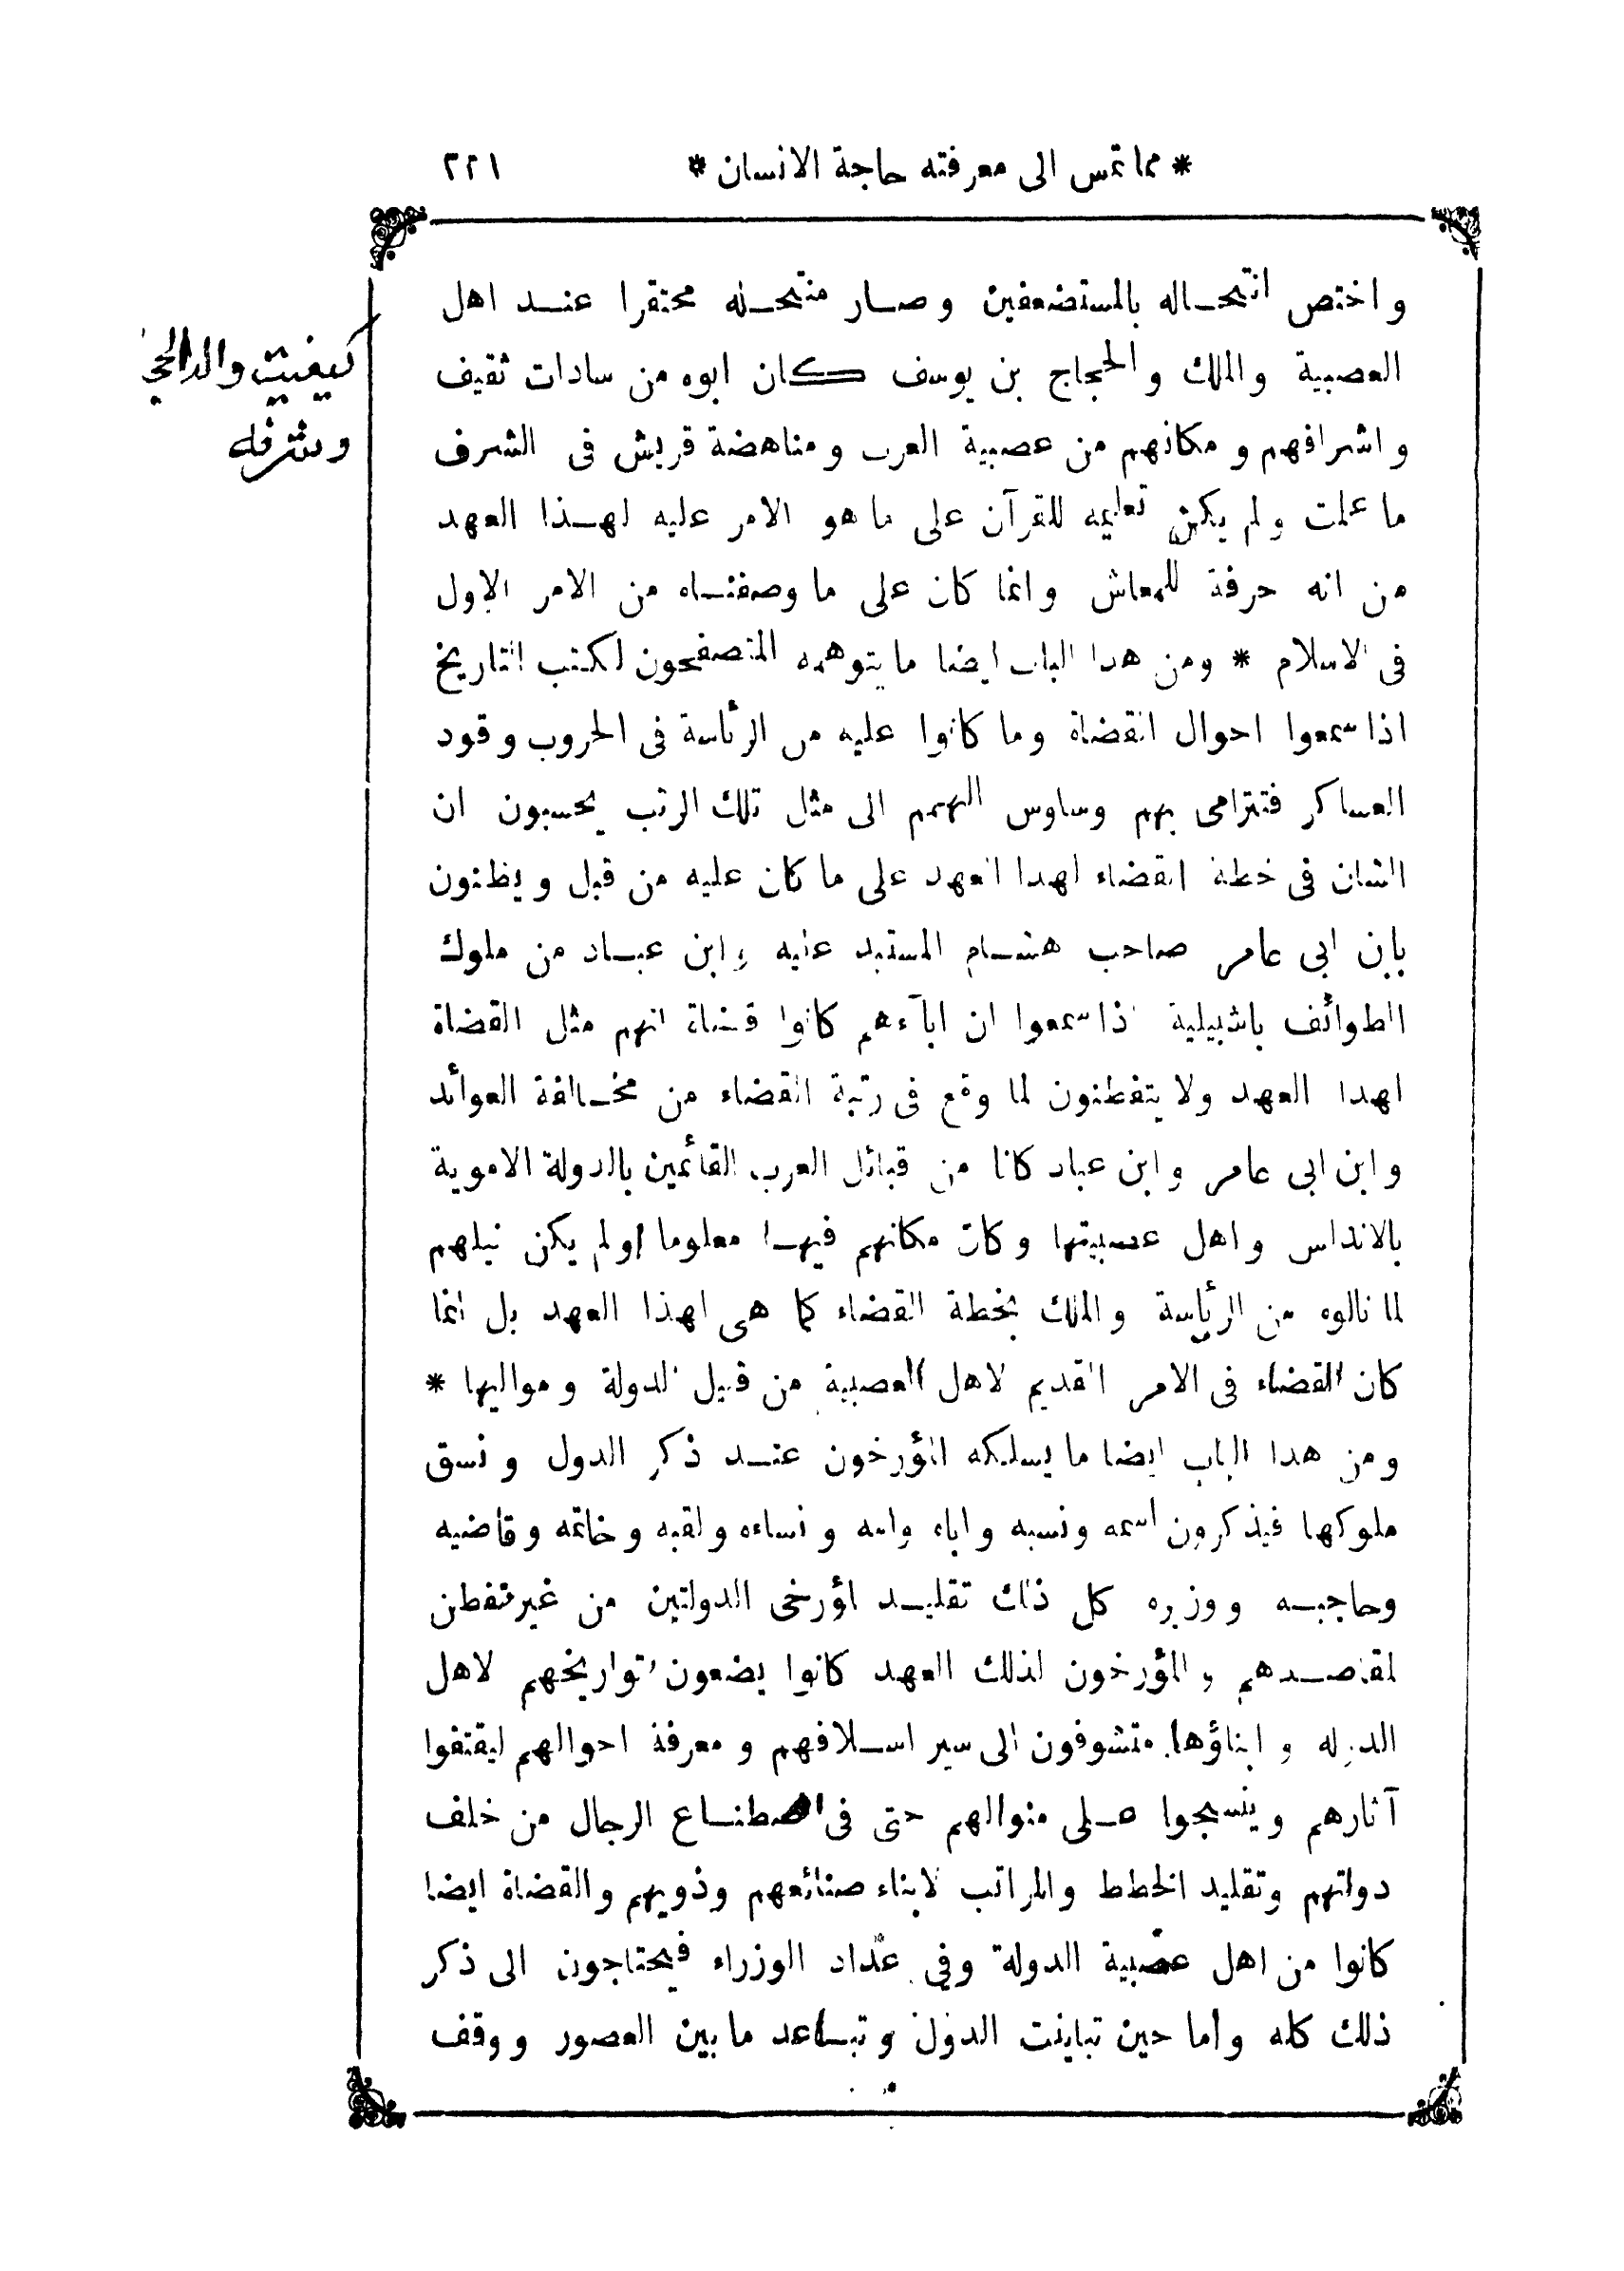 * مما تمس الى معرفته حاجة الانسان * ٢٢١
واختص انتحاله بالمستضعفين وصار منتحله محتقرا عند اهل
العصبية والملك والحجاج بن يوسف كان ابوه من سادات ثقيف
واشرافهم ومكانهم من عصبية العرب ومناهضة قريش فى الشرف
ما علمت ولم يكن تعليمه للقرآن على ما هو الامر عليه لهذا العهد
من انه حرفة للمعاش وانما كان على ما وصفناه من الامر الاول
فى الاسلام * ومن هذا الباب ايضا ما يتوهمه المتصفحون لكتب التاريخ
اذا سمعوا احوال القضاة وما كانوا عليه من الرئاسة فى الحروب وقود
العساكر فتترامى بهم وساوس الهمم الى مثل تلك الرتب يحسبون ان
الشان فى خطة القضاء لهذا العهد على ما كان عليه من قبل ويظنون
بابن ابى عامر صاحب هشام المستبد عليه وابن عباد من ملوك
الطوائف باشبيلية اذا سمعوا ان ابآءهم كانوا قضاة انهم مثل القضاة
لهذا العهد ولا يتفطنون لما وقع فى رتبة القضاء من مخالفة العوائد
وابن ابى عامر وابن عباد كانا من قبائل العرب القائمين بالدولة الاموية
بالاندلس واهل عصبيتها وكان مكانهم فيها معلوما ولم يكن نيلهم
لما نالوه من الرئاسة والملك بخطة القضاء كما هى لهذا العهد بل انما
كان القضاء فى الامر القديم لاهل العصبية من قبيل الدولة ومواليها *
ومن هذا الباب ايضا ما يسلكه المؤرخون عند ذكر الدول ونسق
ملوكها فيذكرون اسمه ونسبه واباه وامه ونساءه ولقبه وخاتمه وقاضيه
وحاجبه ووزيره كل ذلك تقليد لمؤرخى الدولتين من غير تفطن
لمقاصدهم والمؤرخون لذلك العهد كانوا يضعون تواريخهم لاهل
الدوله وابناؤها متشوفون الى سير اسلافهم ومعرفة احوالهم ليقتفوا
آثارهم وينسجوا على منوالهم حتى فى اصطناع الرجال من خلف
دولتهم وتقليد الخطط والمراتب لابناء صنائعهم وذويهم والقضاة ايضا
كانوا من اهل عصبية الدولة وفى عداد الوزراء فيحتاجون الى ذكر
ذلك كله واما حين تباينت الدول وتباعد ما بين العصور ووقف
والد
وشرفه